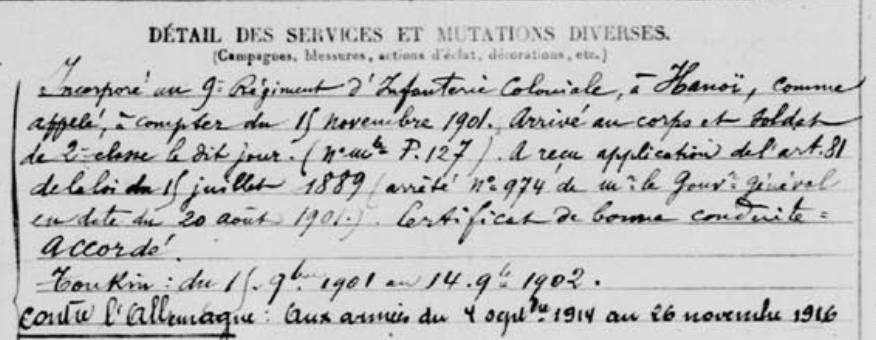 DÉTAIL DES SERVICES ET MUTATIONS DIVERSES.
(Campagnes, blessures, actions d'éclat, décorations, etc.)
Incorporé au 9e Régiment d'Infanterie Coloniale, à Hanoï, comme
appelé, à compter du 15 novembre 1901. Arrivé au corps et soldat
de 2e classe le dit jour. (No mle P. 127). A reçu application de l'art. 81
de la loi du 15 juillet 1889 (arrêté No 974 de Mr le Gouvr général
en date du 20 août 1901.). Certificat de bonne conduite =
Accordé.
Tonkin : du 15. 9bre 1901 au 14. 9bre 1902.
Contre l'Allemagne : Aux armées du 4 septbre 1914 au 26 novembre 1916